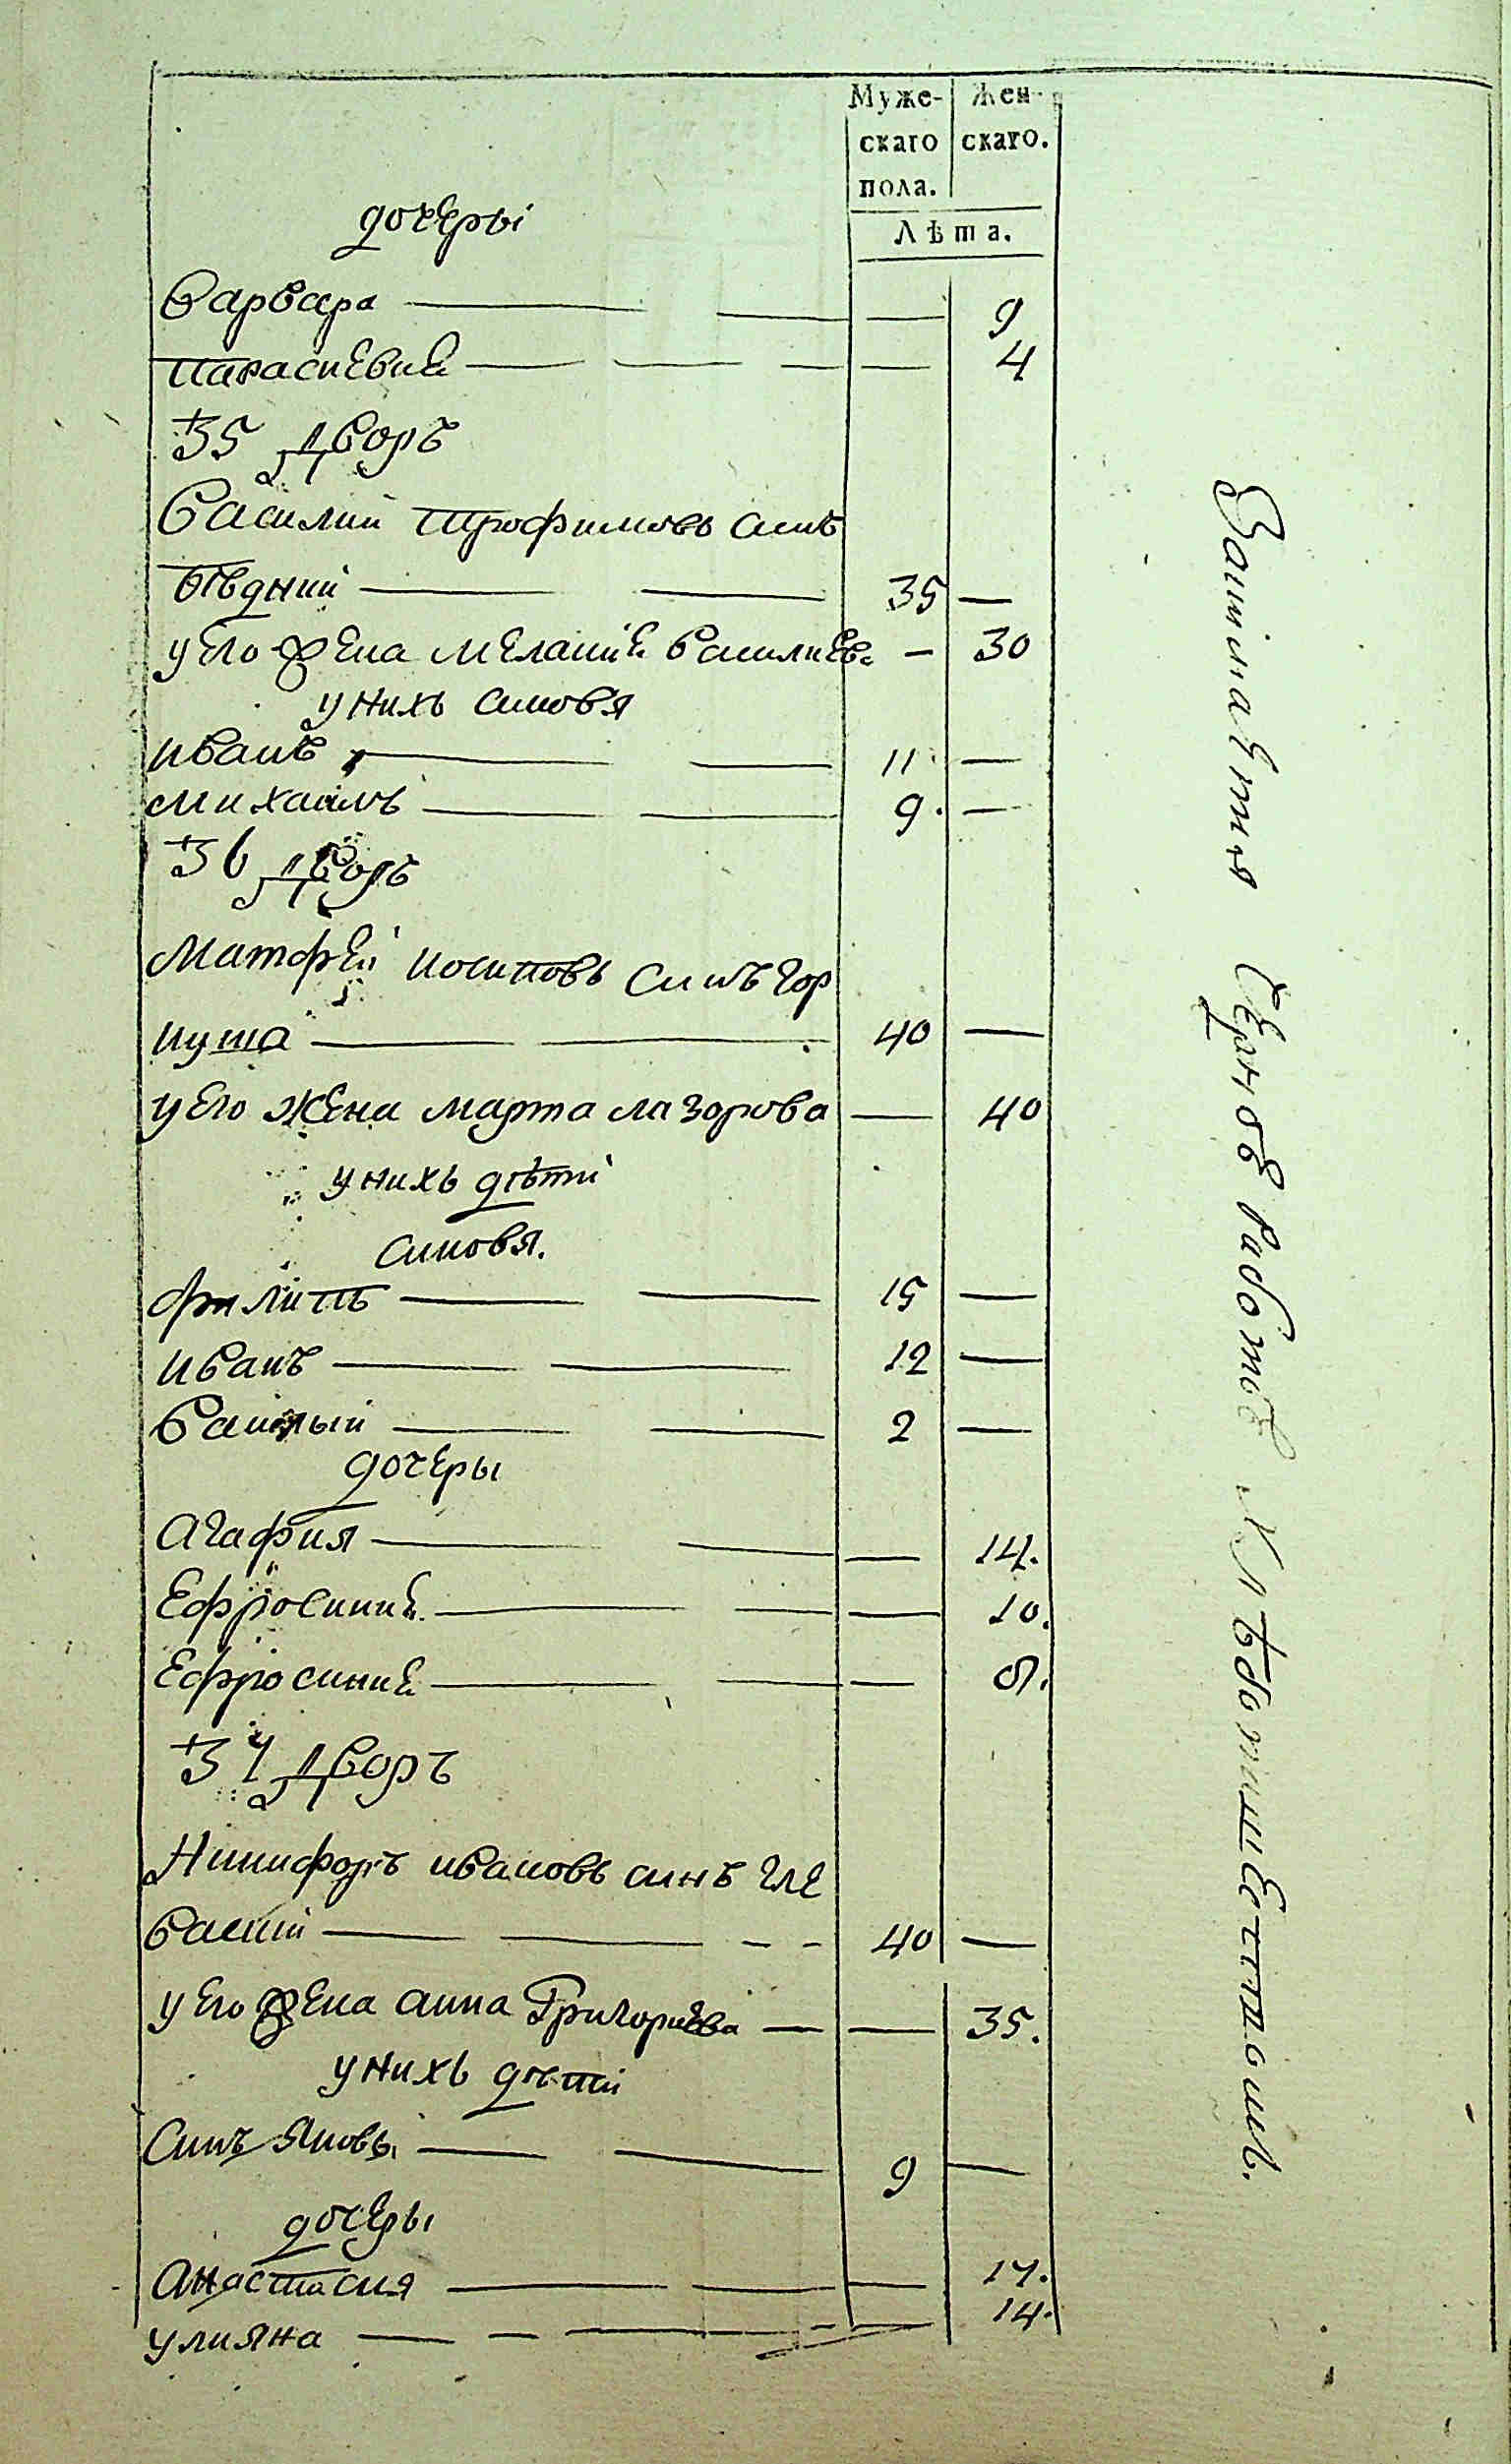 Муже- Жен-
скаго скаго.
пола.
Лѣта.
дочеры
Варвара — — — 9
Параскевия — — — — 4
35 Дворъ
Василий Трофимовъ синъ
Бѣдний — — 35 —
у его жена Мелания Василиева — 30
у нихъ синовя
Иванъ — — 11 —
Михаилъ — — 9. —
36 Дворъ
Матфей Иосиповъ синъ Гор
пуша — — 40 —
у его жена Марта Лазорова — 40
у нихъ дѣти
синовя.
Филипъ — — 15 —
Иванъ — — 12 —
Василый — — 2 —
дочеры
Агафия — — — 14.
Ефросиния — — — 10.
Ефросиния — — — 8.
37 Дворъ
Никифоръ Ивановъ синъ Гле
вский — — - - 40 —
у его жена Анна Григориева — — 35.
у нихъ дѣти
Синъ Яковъ — — 9 —
дочеры
Анастасия — — — 17.
Улияна — - — - — 14.
работъ